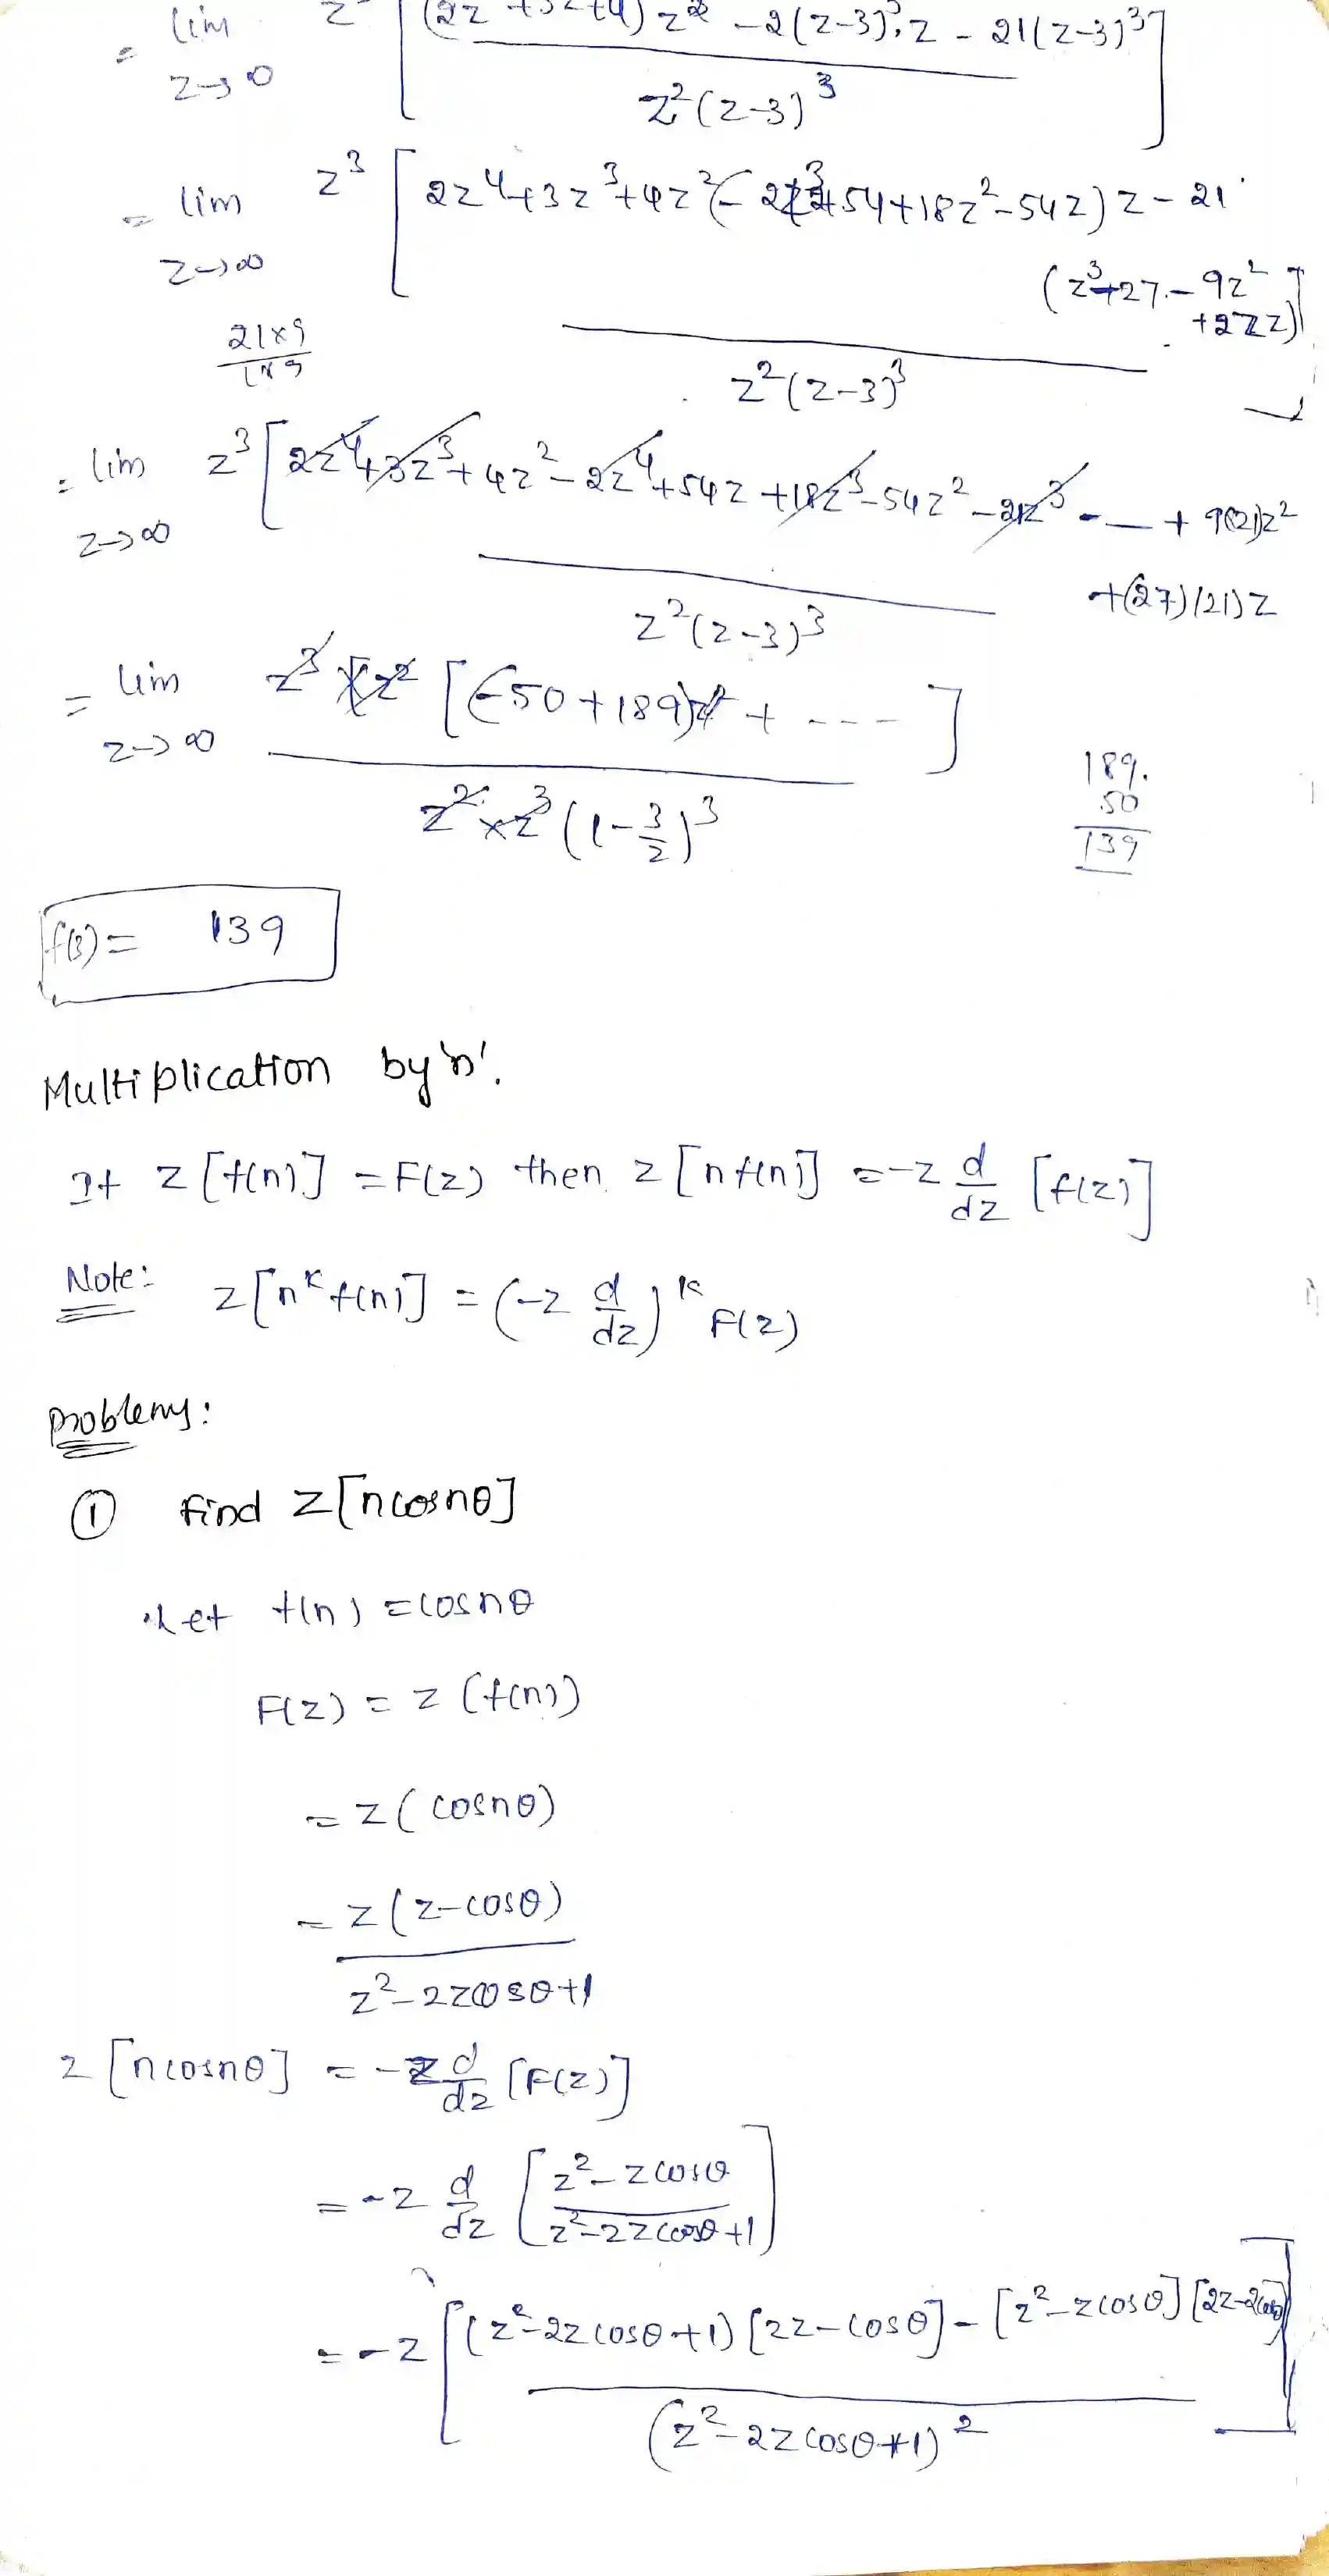 = lim z→∞ z³ [ (2z²+3z+4) z² - 2(z-3)³.z - 21(z-3)³ ]
z²(z-3)³
= lim z→∞ z³ [ 2z⁴+3z³+4z² (- 2z³ 54+18z²-54z) z - 21
(z³+27.-9z²
+27z) ]
21×9
1×9
z²(z-3)³
= lim z→∞ z³ [ 2z⁴+3z³+4z²-2z⁴+54z+18z³-54z²-21z³ - — + 9(21)z²
+(27)(21)z
z²(z-3)³
= lim z→∞ z³ × z² [(-50+189) + ---- ]
z²×z³ (1-3/z)³
189.
50
139
f(3) = 139
Multiplication by 'n'.
If z[f(n)] = F(z) then z[n f(n)] = -z d/dz [f(z)]
Note: z[nᵏ f(n)] = (-z d/dz)ᵏ F(z)
Problems:
① find z[n cosnθ]
Let f(n) = cosnθ
F(z) = z(f(n))
= z(cosnθ)
= z(z-cosθ)
z²-2zcosθ+1
z[n cosnθ] = -z d/dz [F(z)]
= -z d/dz [ z²-zcosθ / z²-2zcosθ+1 ]
= -z [ (z²-2zcosθ+1) [2z-cosθ] - [z²-zcosθ] [2z-2cosθ] ]
(z²-2zcosθ+1)²